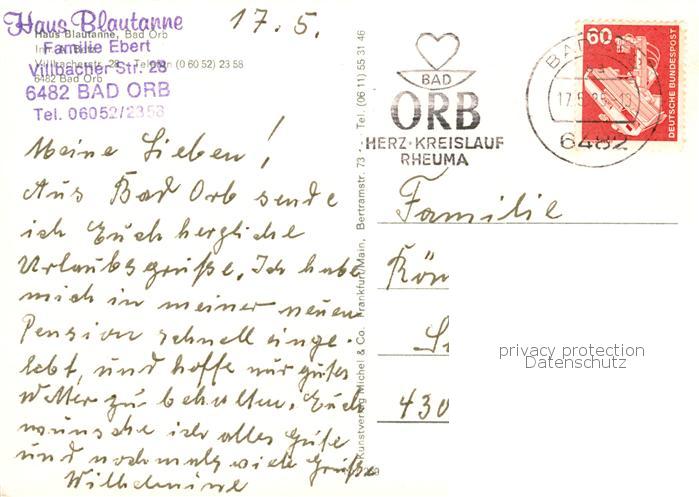 Haus Blautanne
Familie Ebert
Villbacher Str. 28
6482 BAD ORB
Tel. 06052/2358
Haus Blautanne, Bad Orb
Villbacherstr. 28 - Telefon (0 60 52) 23 58
6482 Bad Orb
17.5.
Meine Lieben!
Aus Bad Orb sende
ich Euch herzliche
Urlaubsgrüße. Ich habe
mich in meiner neuen
Pension schnell einge-
lebt, und hoffe nur gutes
Wetter zu behalten. Euch
wünsche ich alles Gute
und nochmals viele Grüße
Wilhelmine
Kunstverlag Michel & Co. Frankfurt/Main, Bertramstr. 73 - Tel. (06 11) 55 31 46
BAD
ORB
HERZ·KREISLAUF
RHEUMA
BAD
17.5.
6482
60
DEUTSCHE BUNDESPOST
Familie
Kön
430
privacy protection
Datenschutz